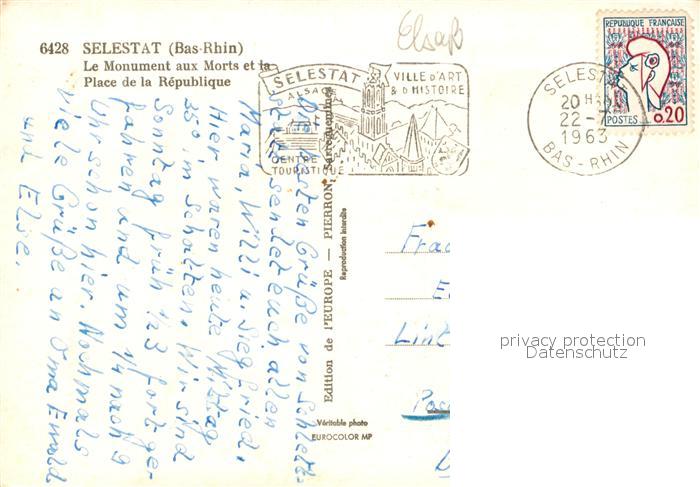 Elsaß
6428 SELESTAT (Bas-Rhin)
Le Monument aux Morts et la
Place de la République
SELESTAT
ALSACE
VILLE D'ART
& D'HISTOIRE
CENTRE
TOURISTIQUE
SELESTAT
20 H
22-7
1963
BAS-RHIN
REPUBLIQUE FRANÇAISE
POSTES 0,20
Die besten Grüße von Schlett-
stadt sendet euch allen
Maria, Willi u. Siegfried.
Hier waren heute Mittag
35° im Schatten. Wir sind
Sonntag früh 1/23 fortge-
fahren und um 1/4 nach 9
Uhr schon hier. Nochmals
viele Grüße an Oma Ewald
und Else.
Edition de l'EUROPE — PIERRON, Sarreguemines
Reproduction interdite
Véritable photo
EUROCOLOR MP
privacy protection
Datenschutz